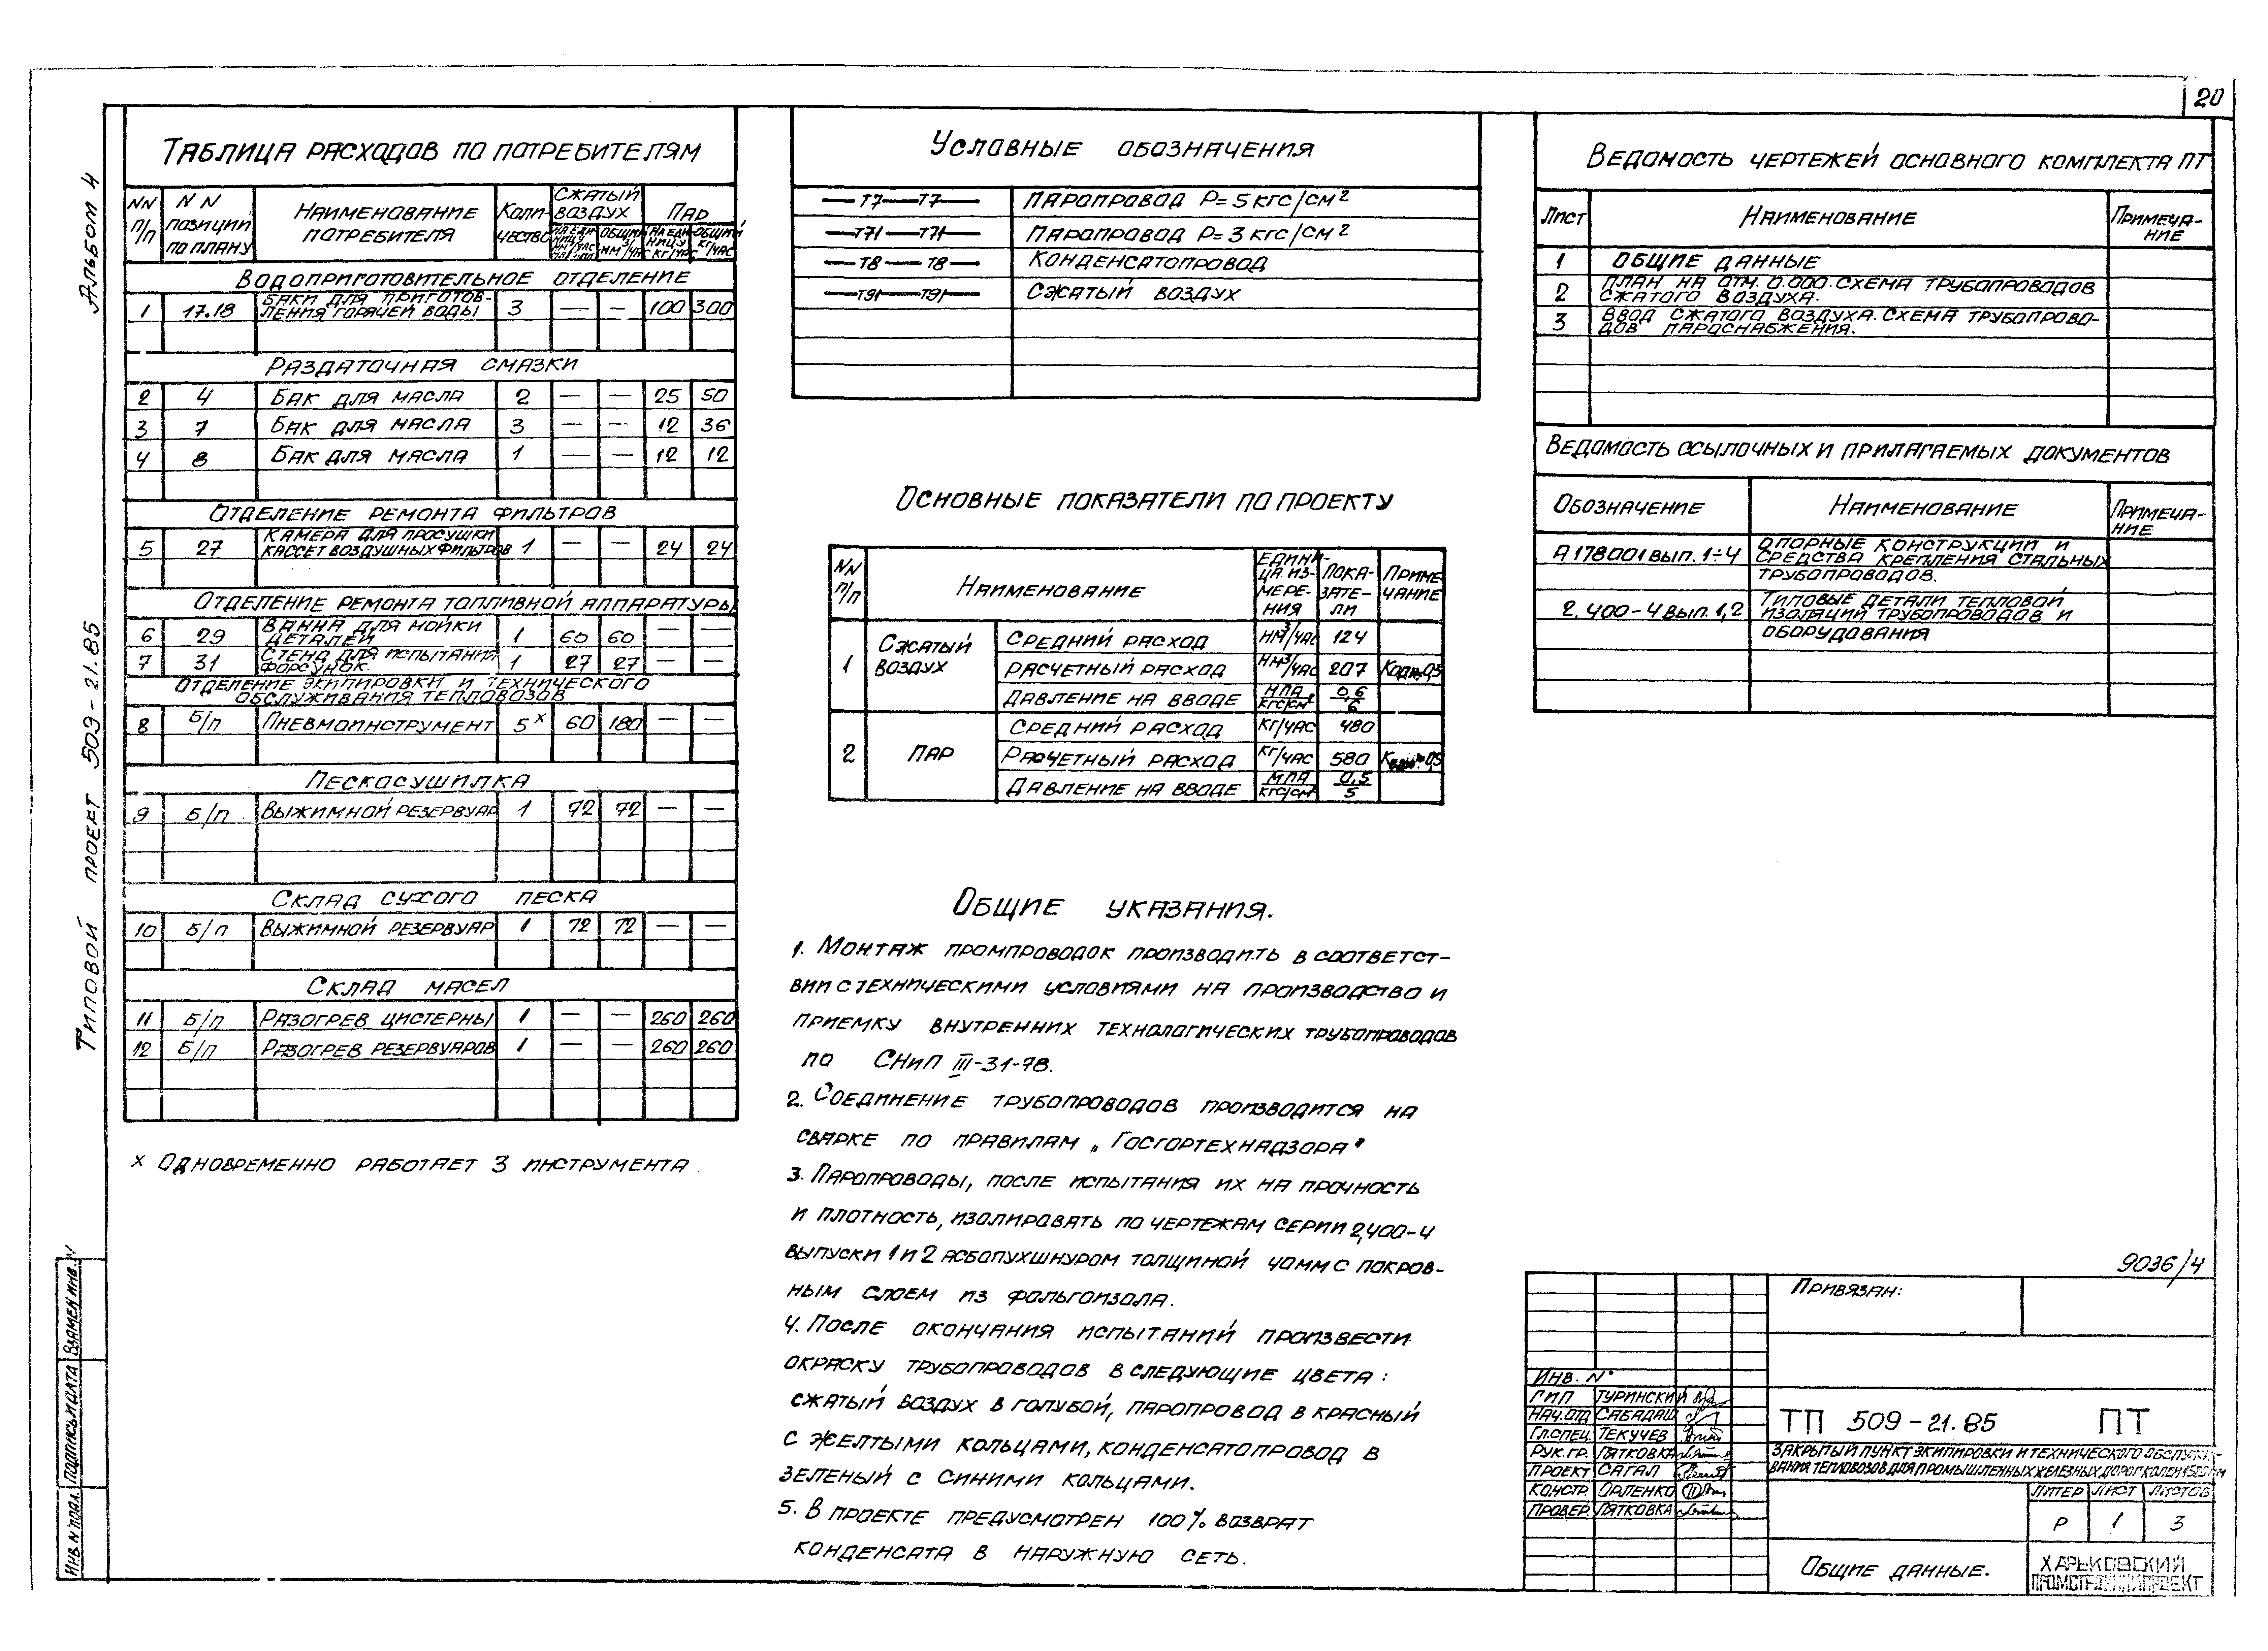 20
Альбом 4
Типовой проект 509-21.85
Таблица расходов по потребителям
NN п/п | NN позиций по плану | Наименование потребителя | Количество | Сжатый воздух | Пар
общий нм³/час | на единицу кг/час | общий кг/час
Водоприготовительное отделение
1 | 17.18 | Баки для приготовления горячей воды | 3 | — | — | 100 | 300
Раздаточная смазки
2 | 4 | Бак для масла | 2 | — | — | 25 | 50
3 | 7 | Бак для масла | 3 | — | — | 12 | 36
4 | 8 | Бак для масла | 1 | — | — | 12 | 12
Отделение ремонта фильтров
5 | 27 | Камера для просушки кассет воздушных фильтров | 1 | — | — | 24 | 24
Отделение ремонта топливной аппаратуры
6 | 29 | Ванна для мойки деталей | 1 | 60 | 60 | — | —
7 | 31 | Стенд для испытания форсунок. | 1 | 27 | 27 | — | —
Отделение экипировки и технического
обслуживания тепловозов
8 | б/п | Пневмоинструмент | 5ˣ | 60 | 180 | — | —
Пескосушилка
9 | б/п | Выжимной резервуар | 1 | 72 | 72 | — | —
Склад сухого песка
10 | б/п | Выжимной резервуар | 1 | 72 | 72 | — | —
Склад масел
11 | б/п | Разогрев цистерны | 1 | — | — | 260 | 260
12 | б/п | Разогрев резервуаров | 1 | — | — | 260 | 260
х Одновременно работает 3 инструмента
Условные обозначения
—Т7—Т7— | Паропровод Р=5 кгс/см²
—Т71—Т71— | Паропровод Р=3 кгс/см²
—Т8—Т8— | Конденсатопровод
—Т91—Т91— | Сжатый воздух
Основные показатели по проекту
NN п/п | Наименование | Единица измерения | Показатели | Примечание
1 | Сжатый воздух | Средний расход | нм³/час | 124
Расчетный расход | нм³/час | 207
Давление на вводе | МПа кгс/см² | 0,6 6
2 | Пар | Средний расход | кг/час | 480
Расчетный расход | кг/час | 580
Давление на вводе | МПа кгс/см² | 0,5 5
Общие указания.
1. Монтаж промпроводок производить в соответст-
вии с техническими условиями на производство и
приемку внутренних технологических трубопроводов
по СНиП III-31-78.
2. Соединение трубопроводов производится на
сварке по правилам „Госгортехнадзора"
3. Паропроводы, после испытания их на прочность
и плотность, изолировать по чертежам серии 2,400-4
выпуски 1 и 2 асбопухшнуром толщиной 40мм с покров-
ным слоем из фольгоизола.
4. После окончания испытаний произвести
окраску трубопроводов в следующие цвета:
сжатый воздух в голубой, паропровод в красный
с желтыми кольцами, конденсатопровод в
зеленый с синими кольцами.
5. В проекте предусмотрен 100% возврат
конденсата в наружную сеть.
Ведомость чертежей основного комплекта ПТ
Лист | Наименование | Примечание
1 | Общие данные
2 | План на отм. 0.000. Схема трубопроводов
сжатого воздуха.
3 | Ввод сжатого воздуха. Схема трубопрово-
дов пароснабжения.
Ведомость ссылочных и прилагаемых документов
Обозначение | Наименование | Примечание
А178001 вып. 1÷4 | Опорные конструкции и
средства крепления стальных
трубопроводов.
2.400-4 вып. 1,2 | Типовые детали тепловой
изоляции трубопроводов и
оборудования
9036/4
Привязан:
Инв. N°
ГИП Туринский
Нач.отд Сабадаш
Гл.спец. Текучев
Рук.гр. Пятковка
Проект Сагал
Констр. Орленко
Провер. Пятковка
ТП 509-21.85 ПТ
Закрытый пункт экипировки и технического обслужи-
вания тепловозов для промышленных железных дорог колеи 1520 мм
Литер | Лист | Листов
Р | 1 | 3
Общие данные.
Харьковский
Промстройниипроект
Взамен инв. N
Подпись и дата
Инв. N подл.